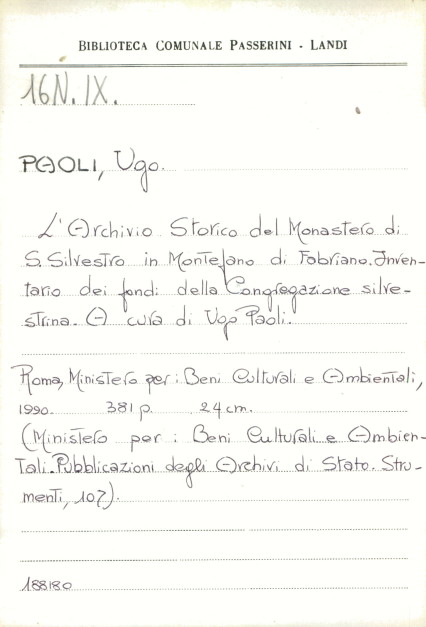 BIBLIOTECA COMUNALE PASSERINI - LANDI
16N. IX.
PAOLI, Ugo.
L'Archivio Storico del Monastero di
S. Silvestro in Montefano di Fabriano. Inven-
tario dei fondi della Congregazione silve-
strina. A cura di Ugo Paoli.
Roma, Ministero per i Beni Culturali e Ambientali,
1990. 381 p. 24 cm.
(Ministero per i Beni Culturali e Ambien-
tali. Pubblicazioni degli Archivi di Stato. Stru-
menti, 107).
188180